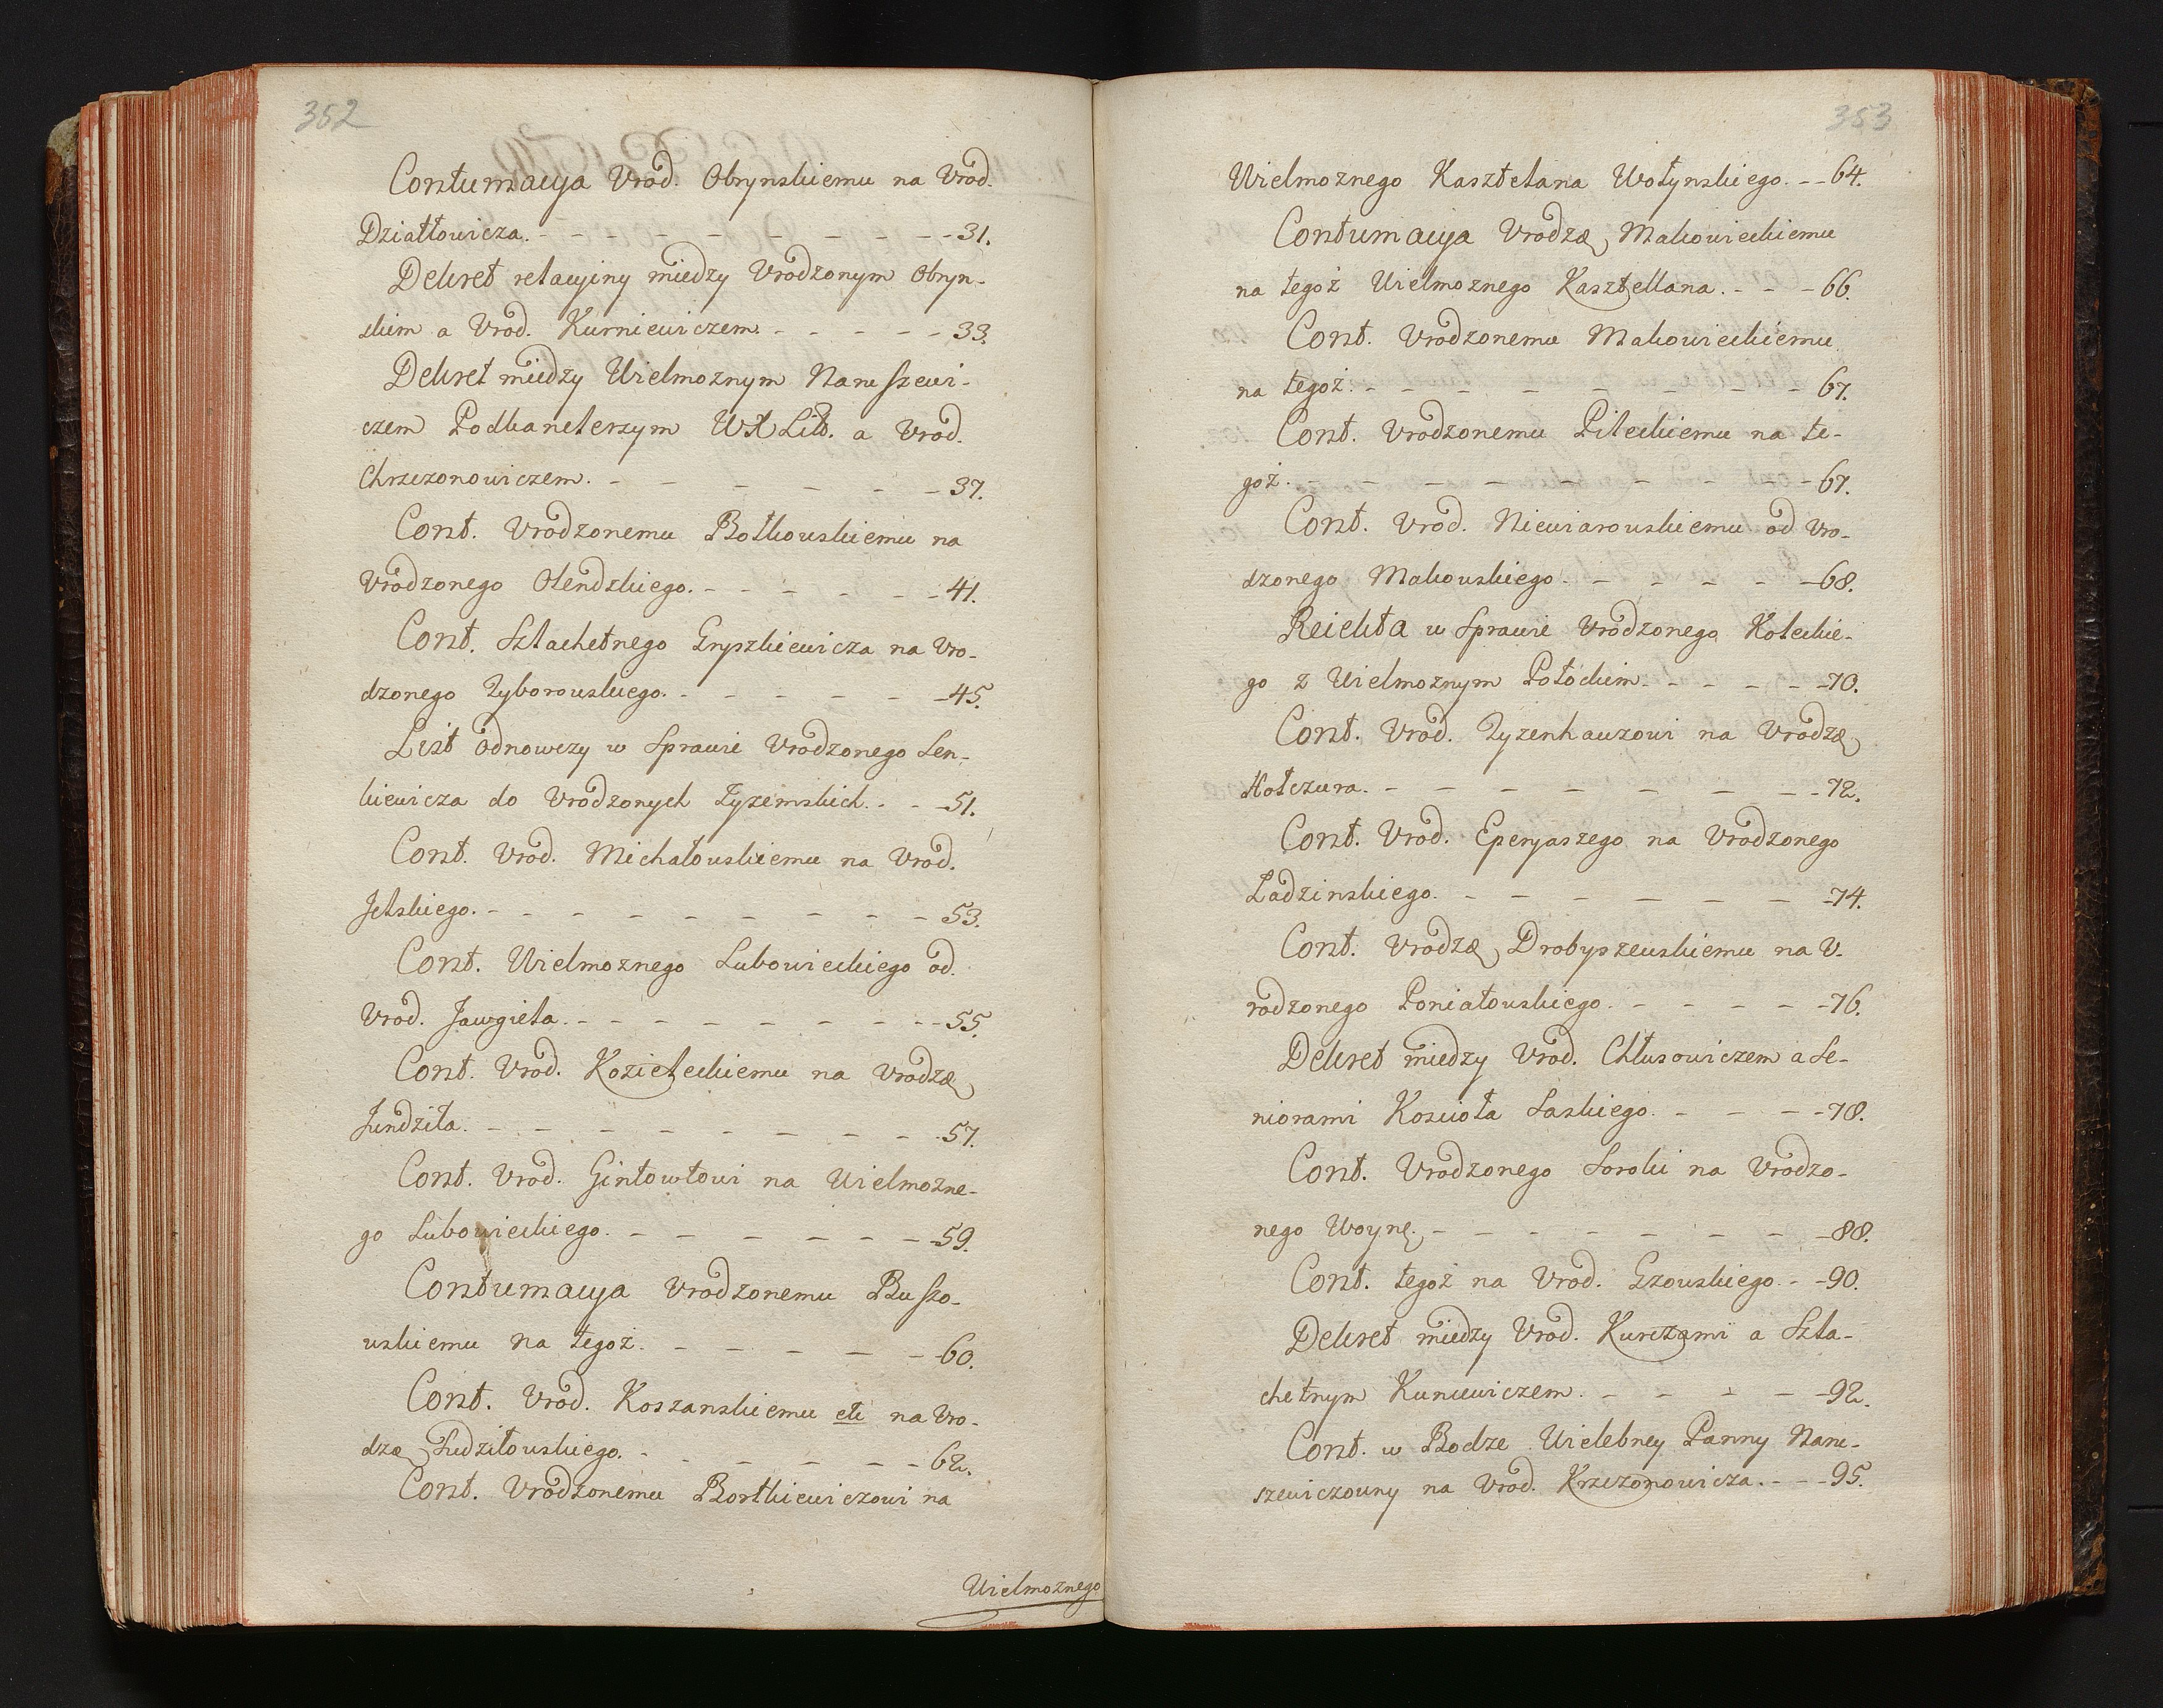 352
Contumacya Vrod. Obrynskiemu na Vrod.
Działłowicza. - - - - - - - - - 31.
Dekret relacyiny miedzy Vrodzonym Obryn-
skim a Vrod. Kurniewiczem. - - - - - 33.
Dekret miedzy Wielmoznym Naruszewi-
czem Podkanclerzym WXLitt. a Vrod.
Chrzczonowiczem. - - - - - - - 37.
Cont. Vrodzonemu Bolkowskiemu na
Vrodzonego Olendzkiego. - - - - - - 41.
Cont. Szlachetnego Gryszkiewicza na Vro-
dzonego Zyborowskiego. - - - - - - 45.
List odnowczy w Sprawie Vrodzonego Sen-
kiewicza do Vrodzonych Zyzemskich. - - - 51.
Cont. Vrod. Michałowskiemu na Vrod.
Jelskiego. - - - - - - - - - 53.
Cont. Wielmoznego Lubowieckiego od
Vrod. Jawgieła. - - - - - - - - - 55.
Cont. Vrod. Kozieleckiemu na Vrodzę
Jundziła. - - - - - - - - - 57.
Cont. Vrod. Gintowtowi na Wielmozne-
go Lubowieckiego. - - - - - - - 59.
Contumacya Vrodzonemu Buszo-
wskiemu na tegoż. - - - - - - 60.
Cont. Vrod. Koszanskiemu etc na Vro-
dzę Sudziłowskiego. - - - - - - 62.
Cont. Vrodzonemu Bortkiewiczowi na
Wielmoznego
353
Wielmoznego Kasztelana Wołynskiego. - - 64.
Contumacya Vrodzę Makowieckiemu
na tegoż Wielmoznego Kasztellana. - - - 66.
Cont. Vrodzonemu Makowieckiemu
na tegoż. - - - - - - - - - 67.
Cont. Vrodzonemu Pileckiemu na te-
goż. - - - - - - - - - 67.
Cont. Vrod. Niewiarowskiemu od Vro-
dzonego Makowskiego. - - - - - 68.
Reiekta w Sprawie Vrodzonego Koleckie-
go z Wielmoznym Potockim. - - - - - 70.
Cont. Vrod. Zyzenhauzowi na Vrodzę
Kotczura. - - - - - - - - 72.
Cont. Vrod. Eperyaszego na Vrodzonego
Ladzinskiego. - - - - - - - 74.
Cont. Vrodzę Drobyszewskiemu na V-
rodzonego Poniatowskiego. - - - - - 76.
Dekret miedzy Vrod. Chłusowiczem a Se-
niorami Koscioła Saskiego. - - - - 78.
Cont. Vrodzonego Soroki na Vrodzo-
nego Woynę. - - - - - - - - 88.
Cont. tegoż na Vrod. Gzowskiego. - - 90.
Dekret miedzy Vrod. Kurczami a Szla-
chetnym Kuncewiczem. - - - - - 92.
Cont. w Bodze Wielebney Panny Naru-
szewiczowny na Vrod. Krzczonowicza. - - - 95.